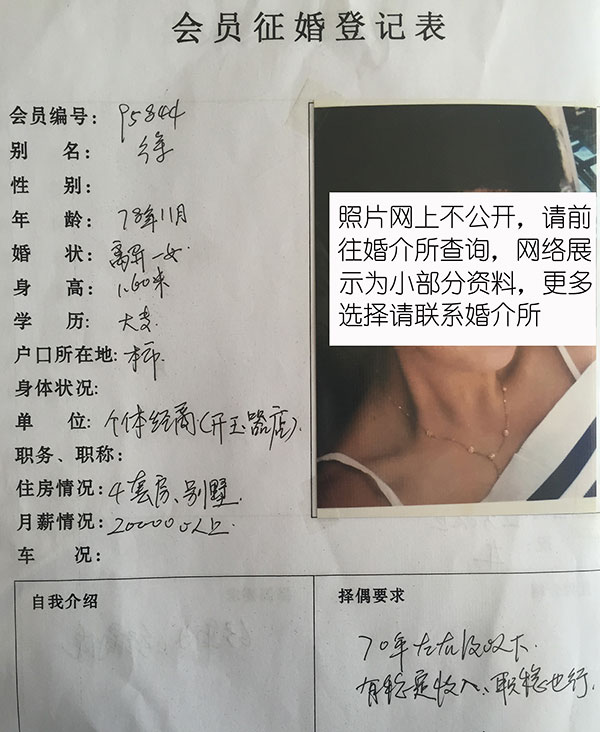 会员征婚登记表
会员编号: 95844
别 名: 徐
性 别:
年 龄: 78年11月
婚 状: 离异一女
身 高: 1.60米
学 历: 大专
户口所在地: 本市.
身体状况:
单 位: 个体经商(开玉器店).
职务、职称:
住房情况: 4套房、别墅
月薪情况: 20000以上.
车 况:
照片网上不公开，请前
往婚介所查询，网络展
示为小部分资料，更多
选择请联系婚介所
自我介绍
择偶要求
70年左右及以下.
有稳定收入、职稳也行.